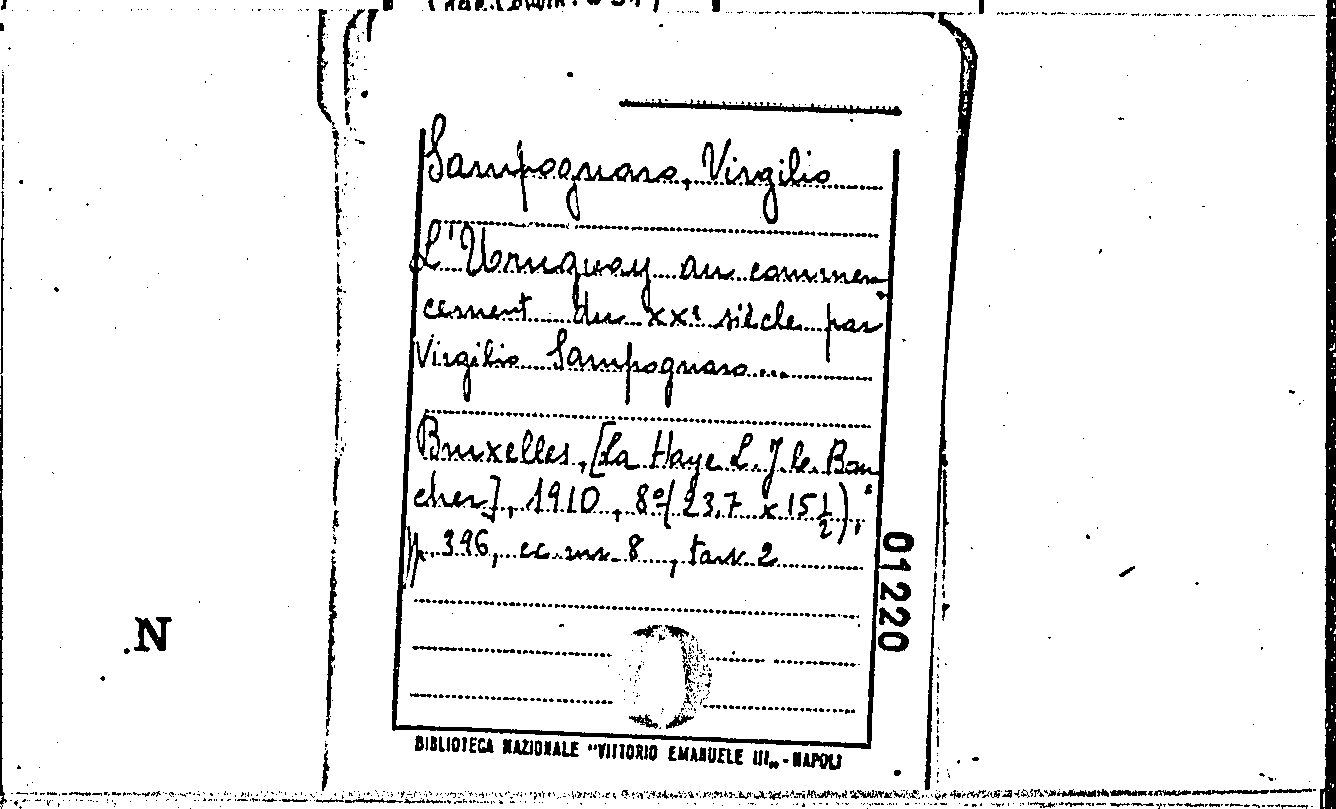 Sampognaro, Virgilio
L'Uruguay au commen
cement du XXe siècle par
Virgilio Sampognaro...
Bruxelles, [La Haye L. J. le Bou
cher], 1910, 8º (23,7 x 15 1/2),
pp. 396, cc. nn. 8, tav. 2
01220
.N
BIBLIOTECA NAZIONALE "VITTORIO EMANUELE III„ - NAPOLI